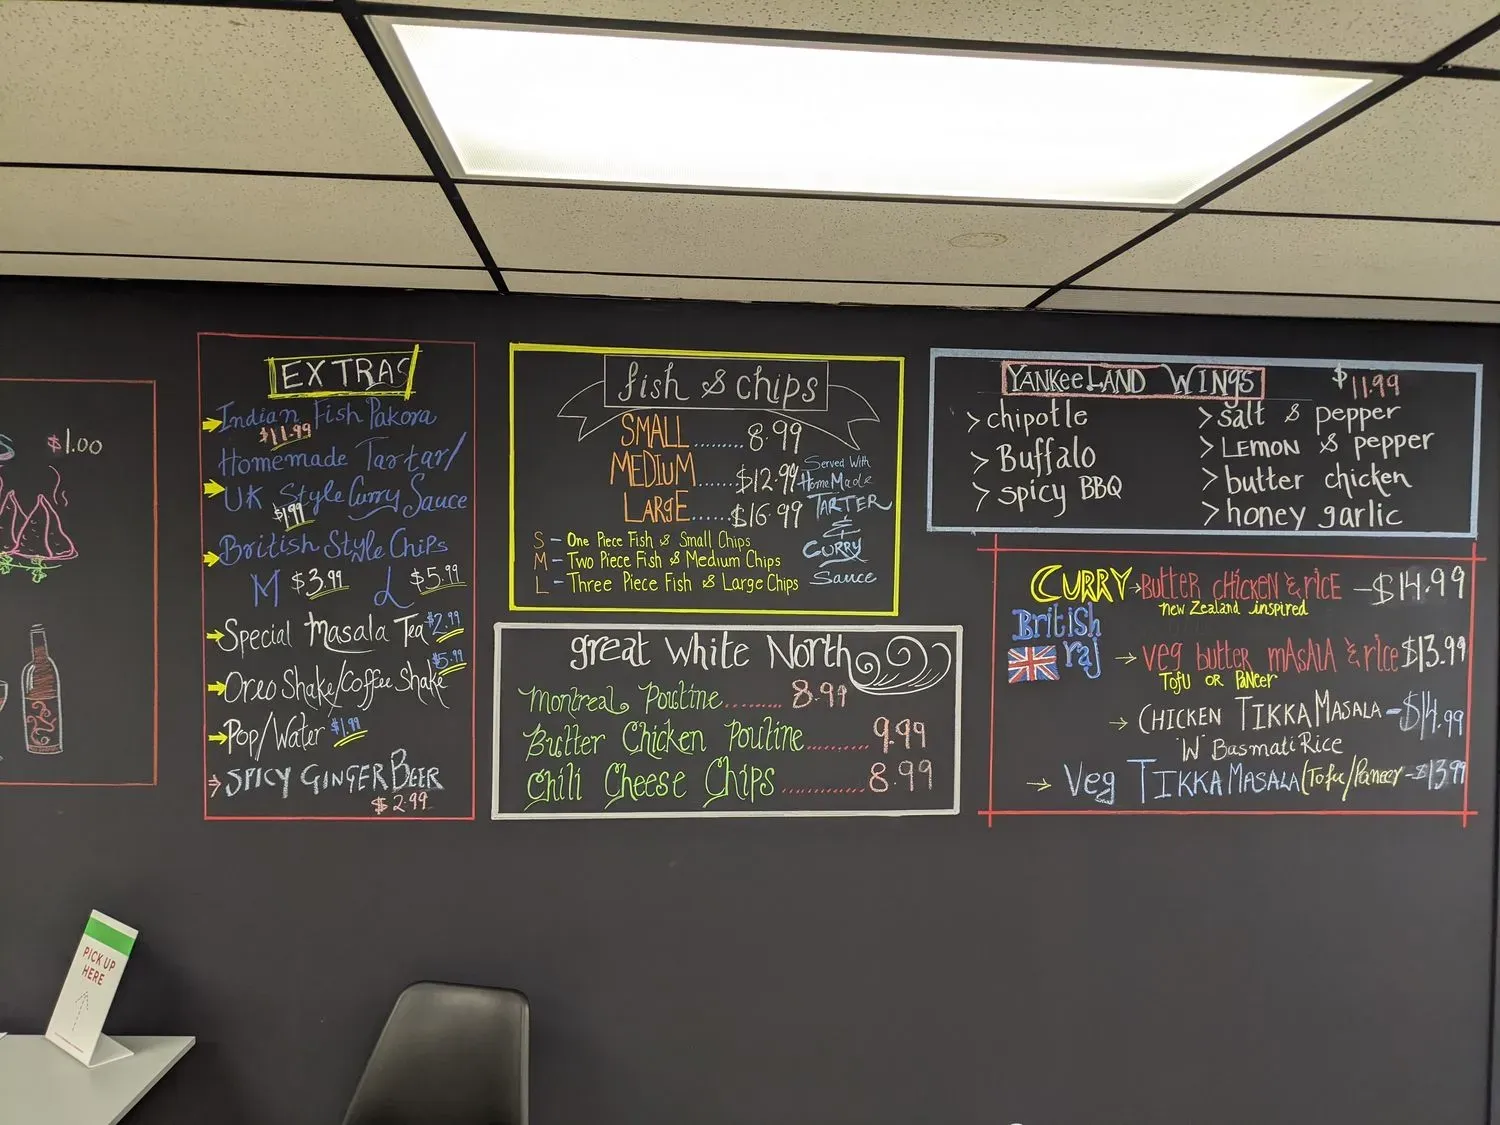 $1.00
EXTRAS
Indian Fish Pakora
$11.99
Homemade Tartar/
UK Style Curry Sauce
$1.99
British Style Chips
M $3.99 L $5.99
Special Masala Tea $2.99
Oreo Shake/Coffee Shake $5.99
Pop/Water $1.99
SPICY GINGER BEER
$2.99
fish & chips
SMALL ........ 8.99
MEDIUM ...... $12.99
LARGE ...... $16.99
Served With
HomeMade
TARTER
&
CURRY
Sauce
S - One Piece Fish & Small Chips
M - Two Piece Fish & Medium Chips
L - Three Piece Fish & Large Chips
great White North
Montreal Poutine ......... 8.99
Butter Chicken Poutine ......... 9.99
Chili Cheese Chips ............ 8.99
YANKEELAND WINGS $11.99
> chipotle
> Buffalo
> spicy BBQ
> salt & pepper
> LEMON & pepper
> butter chicken
> honey garlic
CURRY
British
raj
→ BUTTER CHICKEN & RICE - $14.99
New Zealand inspired
→ Veg butter MASALA & rice $13.99
TOFU OR PANEER
→ CHICKEN TIKKA MASALA - $14.99
W Basmati Rice
→ Veg TIKKA MASALA (Tofu/Paneer - $13.99
PICK UP
HERE